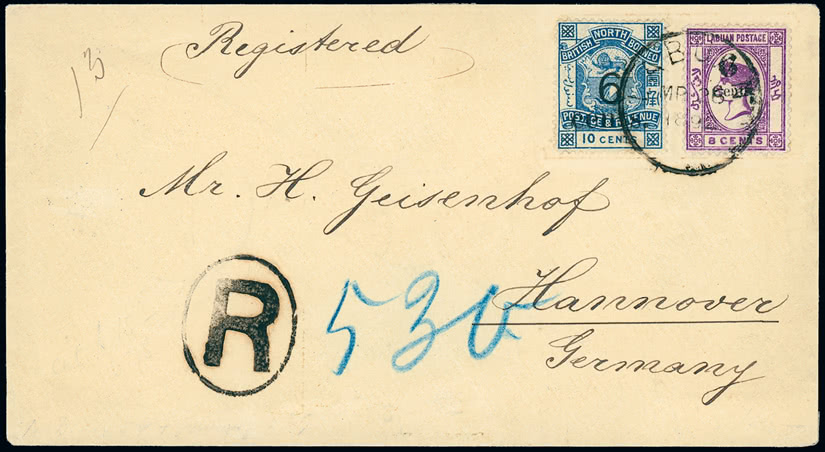 Registered
13
BRITISH NORTH BORNEO
6
POSTAGE & REVENUE
10 CENTS
LABUAN POSTAGE
6
Cents
8 CENTS
1892
Mr. H. Geisenhof
Hannover
Germany
R
530